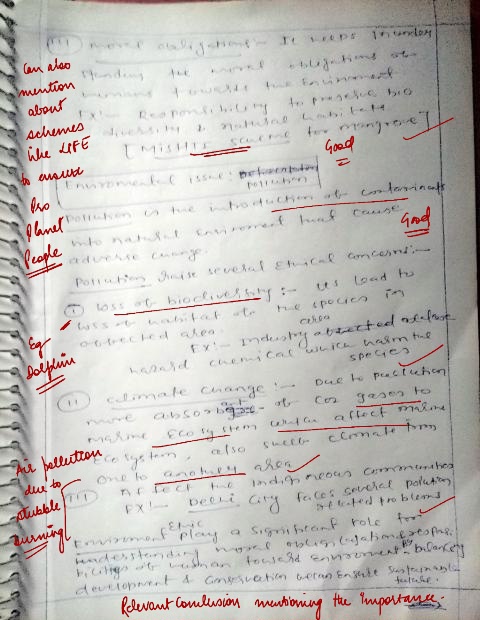 (iii) Moral obligations :- It helps in under
standing the moral obligations of
humans towards the Enviroment
Ex:- Responsibility to preserve bio
diversity & natural habitats
[MISHTI scheme for mangrove]
Enviromental issue: Pollution
Pollution is the introduction of contaminants
into natural Enviroment that cause
adverse change.
Pollution raise several Ethical concerns:-
(i) loss of biodiversity :- lead to
loss of habitat of the species in
area
Ex:- Industry release
hazard chemical which harm the
species
(ii) climate change :- Due to pollution
more of CO2 gases to
marine Ecosystem affect marine
Ecosystem, also climate from
one to area
(iii) Affect the communities
Ex:- Delhi City faces several pollution
related problems
Enviroment Ethic play a significant role for
understanding moral obligation
of human toward Enviroment balancing
development & conservation can Ensure sustainable
future.
Can also
mention
about
schemes
like LIFE
to ensure
Pro
Planet
People
Good
Good
Eg
Dolphin
Air pollution
due to
stubble
burning
Relevant Conclusion mentioning the importance.